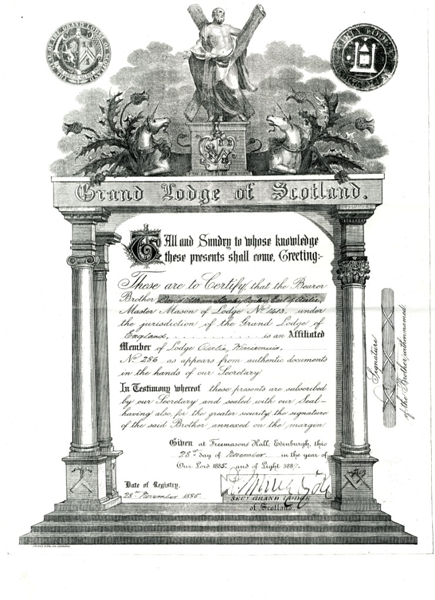 Grand Lodge of Scotland.
To All and Sundry to whose knowledge
these presents shall come, Greeting:-
These are to Certify, that the Bearer
Brother Earl of Airlie,
Master Mason of Lodge No. under
the jurisdiction of the Grand Lodge of
England, is an Affiliated
Member of Lodge Airlie Kirriemuir,
No 286 as appears from authentic documents
in the hands of our Secretary
In Testimony whereof these presents are subscribed
by our Secretary and sealed with our Seal—
having also, for the greater security the signature
of the said Brother annexed on the margin
Given at Freemasons Hall, Edinburgh, this
28th day of November in the year of
Our Lord 1885. and of Light
Date of Registry,
28th November 1885.
SECY GRAND LODGE
of Scotland
Signature
of the Brother within named.